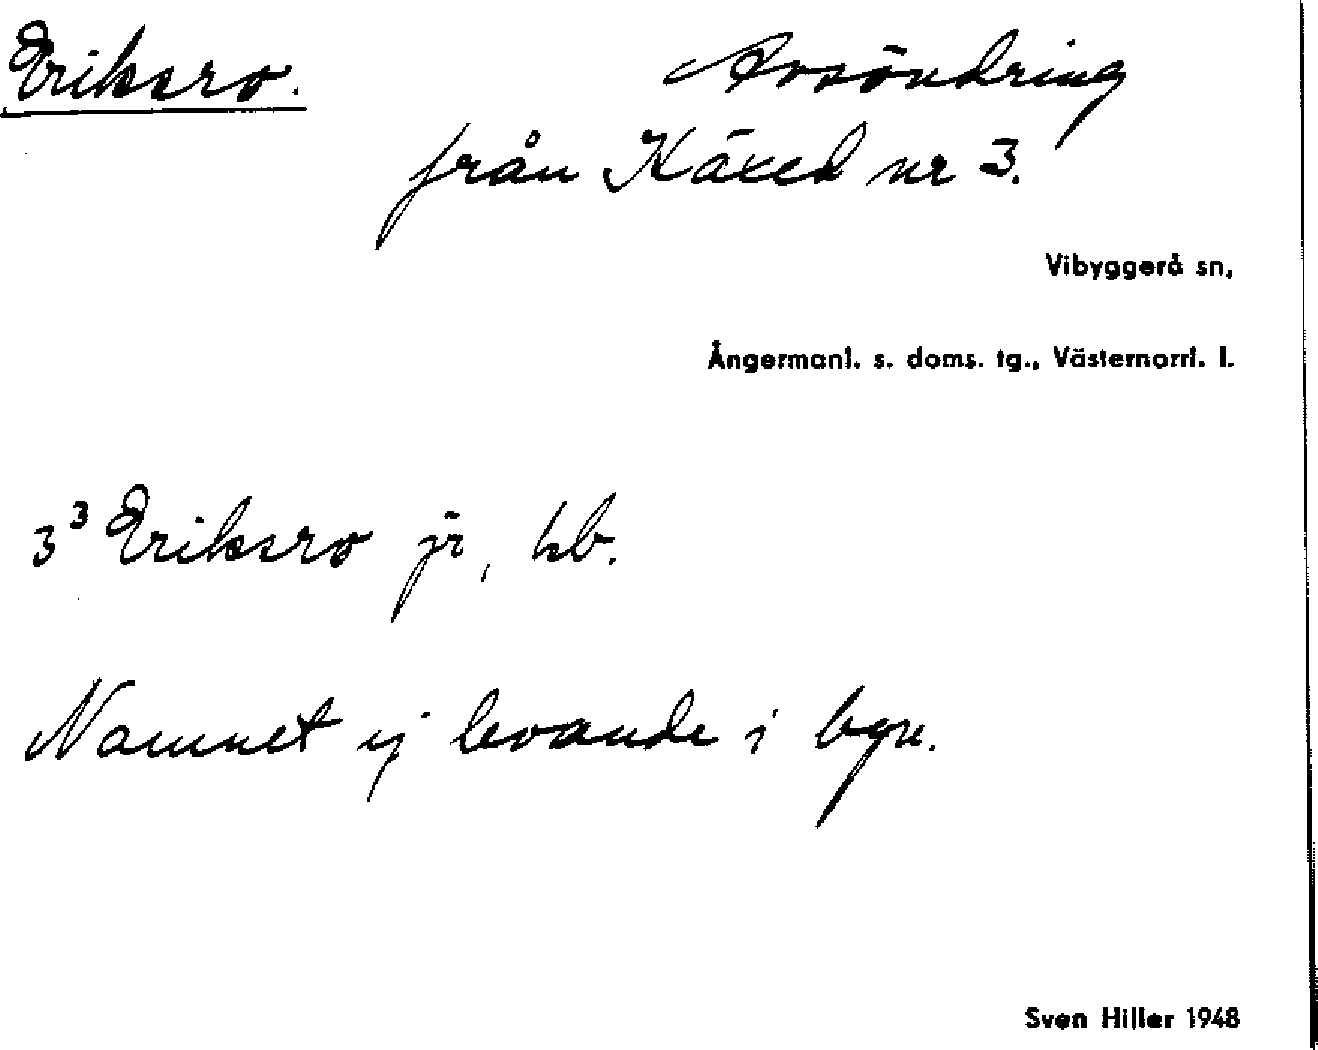 Eriksro.
Avsöndring
från Käxed nr 3.
Vibyggerå sn,
Ångermanl. s. doms. tg., Västernorrl. l.
3³ Eriksro jr, hb.
Namnet ej levande i byn.
Sven Hiller 1948